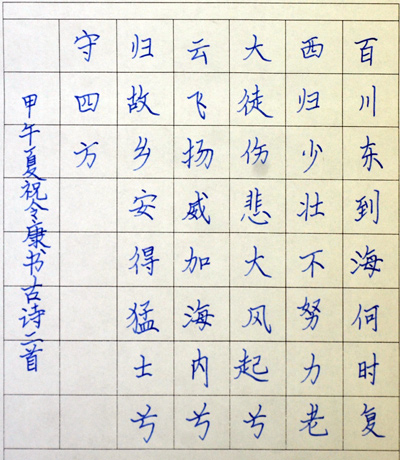 百川东到海何时复
西归少壮不努力老
大徒伤悲大风起兮
云飞扬威加海内兮
归故乡安得猛士兮
守四方
甲午夏祝令康书古诗二首